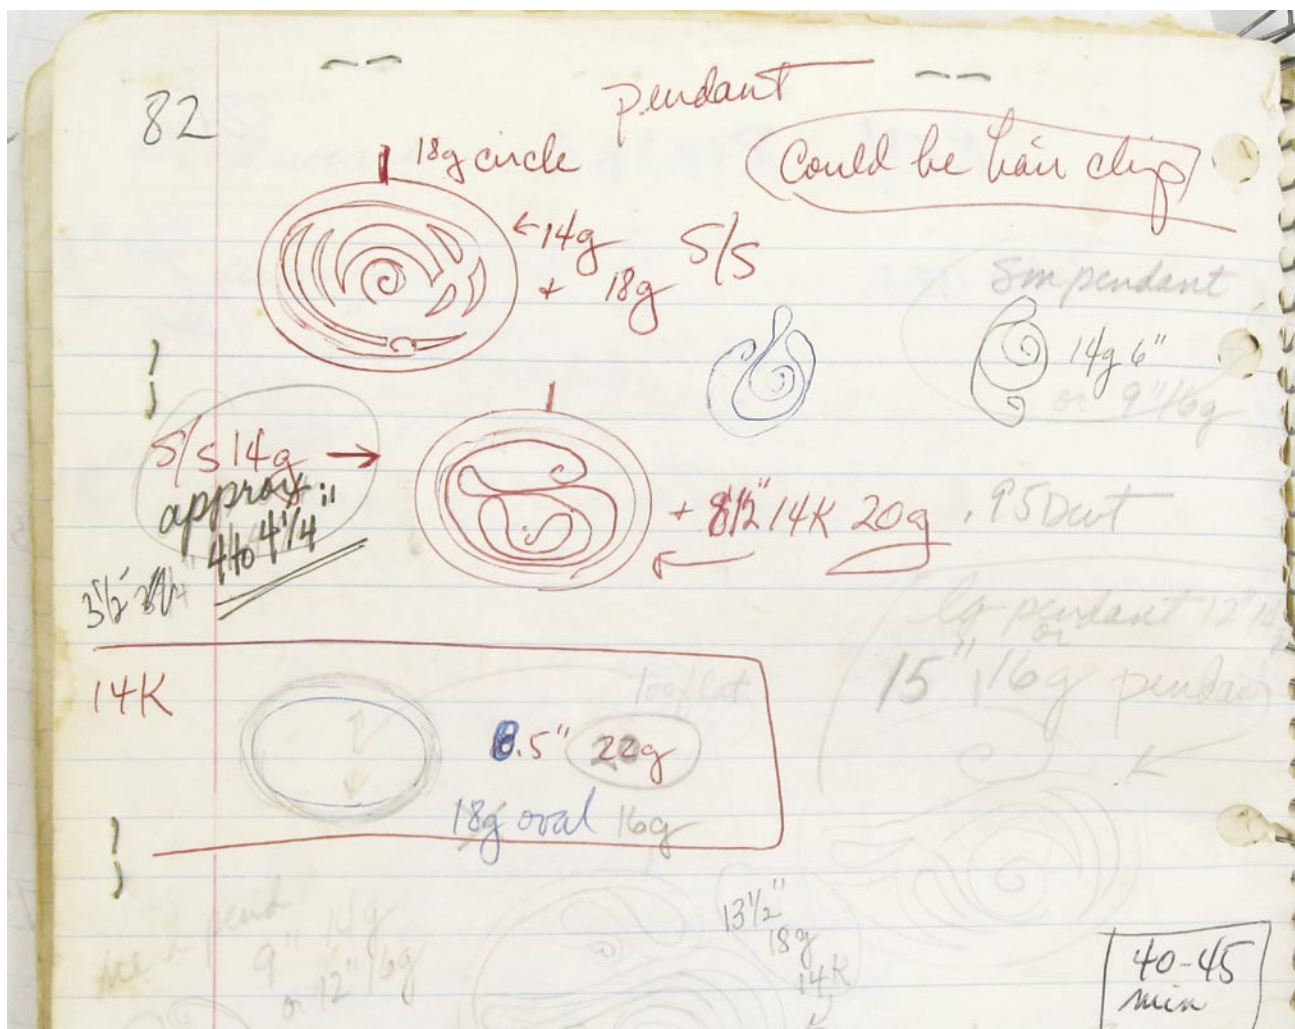 82
pendant
Could be hair clip
18g circle
←14g
+ 18g S/S
Sm pendant
14g 6"
or 9" 16g
S/S 14g →
approx.
4 to 4 1/4"
3 1/2"
+ 8 1/2" 14K 20g .95 Dwt
lg pendant 12"
or
15" 16g pendant
14K
too flat
8.5" 22g
18g oval 16g
med pend
9" 14g
or 12" 16g
13 1/2"
18g
14K
40-45
min